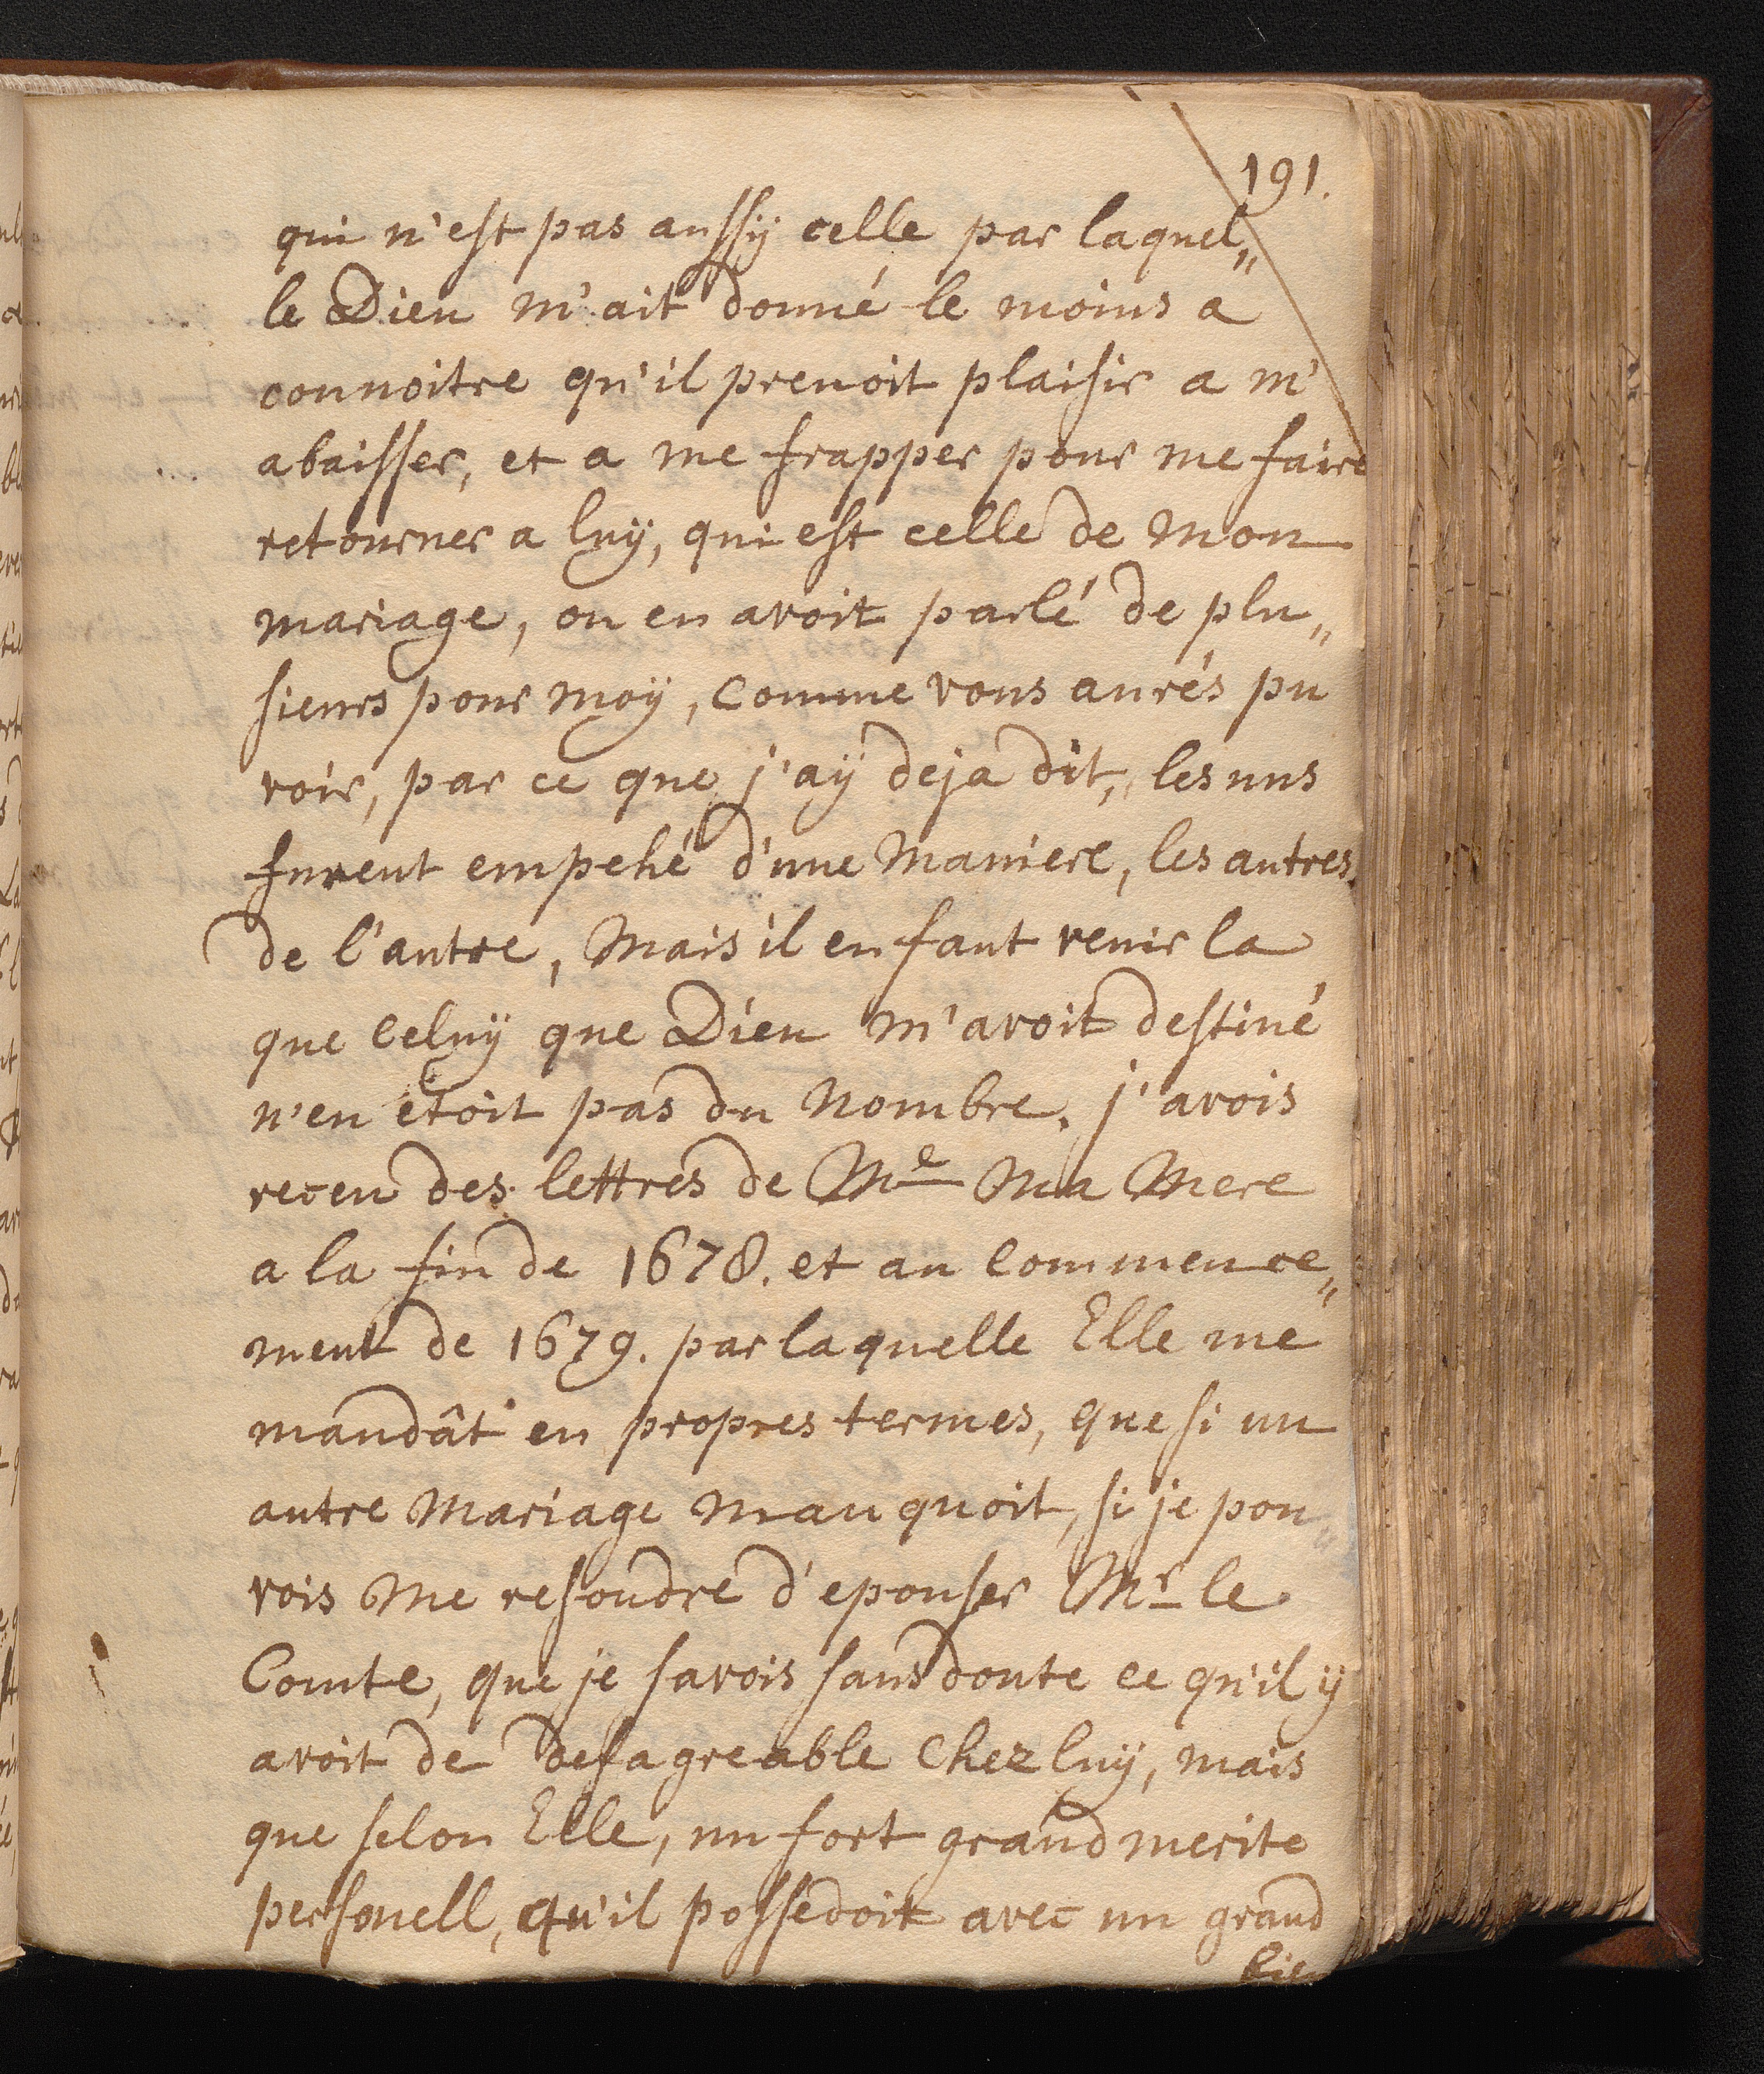 191.
qui n'est pas aussÿ celle par laquel„
le Dieu m'ait donné le moins a
connoitre qu'il prenoit plaisir a m'
abaisser, et a me frapper pour me faire
retourner a luÿ, qui est celle de Mon
mariage, on en avoit parlé de plu„
sieurs pour moÿ, comme vous aurés pu
voir, par ce que j'aÿ deja dit, les uns
furent empehé d'une Maniere, les autres
de l'autre, Mais il en faut venir la
que celuÿ que Dieu m'avoit destiné
n'en étoit pas du Nombre. j'avois
receu des lettres de Me Ma Mere
a la fin de 1678. et au commence„
ment de 1679. par laquelle Elle me
mandât en propres termes, que si un
autre Mariage manquoit, si je pou„
vois me resoudre d'epouser Mr le
Comte, que je savois sans doute ce qu'il ÿ
avoit de desagreable chez luÿ, mais
que selon Elle, un fort grand merite
personell, qu'il possedoit avec un grand
bie